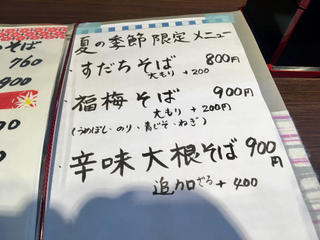 そば
760
900
夏の季節限定メニュー
すだちそば 800円
大もり +200
福梅そば 900円
大もり +200円
(うめぼし・のり・青じそ・ねぎ)
辛味大根そば 900円
追クロざる +400